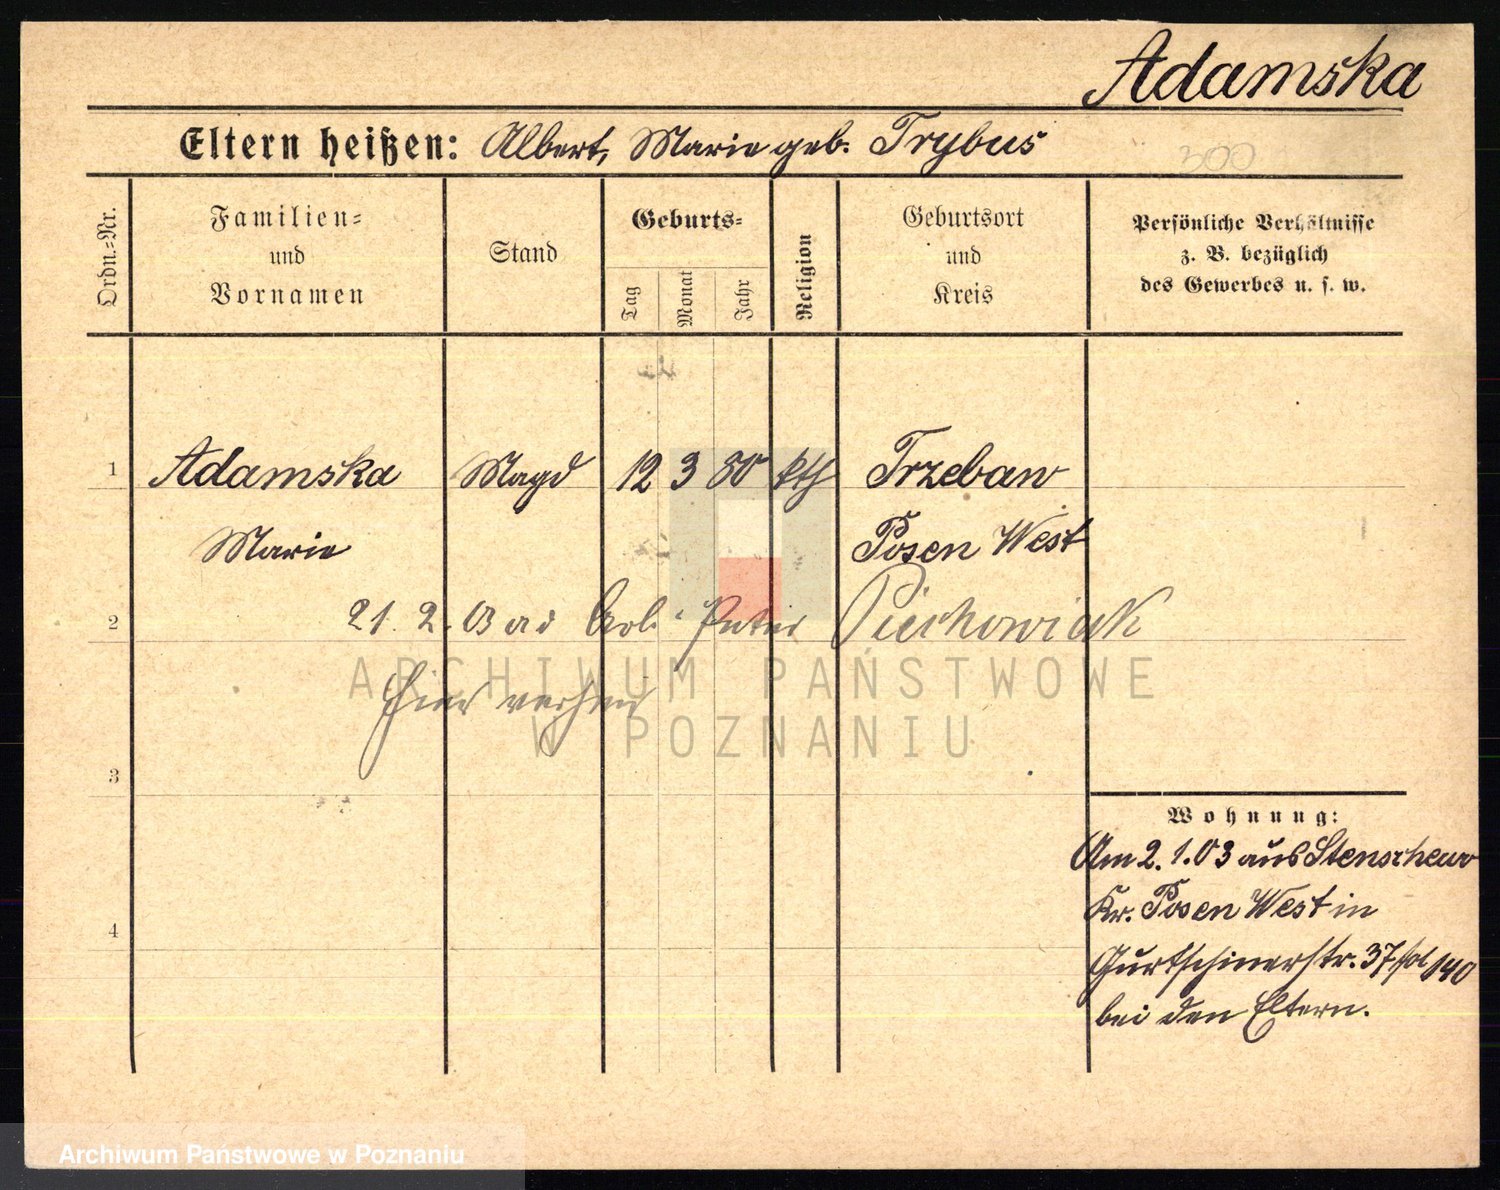 Adamska
Eltern heißen: Albert, Marie geb. Trybus
300
Ordn.=Nr.
Familien=
und
Vornamen
Stand
Geburts=
Tag
Monat
Jahr
Religion
Geburtsort
und
Kreis
Persönliche Verhältnisse
z. B. bezüglich
des Gewerbes u. s. w.
1 Adamska Magd 12 3 80 kth Trzebaw
Marie Posen West
2 21. 2. 03 Arb. Peter Piechowiak
hier
ARCHIWUM PAŃSTWOWE
W POZNANIU
3
Wohnung:
Am 2.1.03 aus Stenschewo
Kr. Posen West in
4
Gurtschinerstr. 37 140
bei den Eltern.
Archiwum Państwowe w Poznaniu